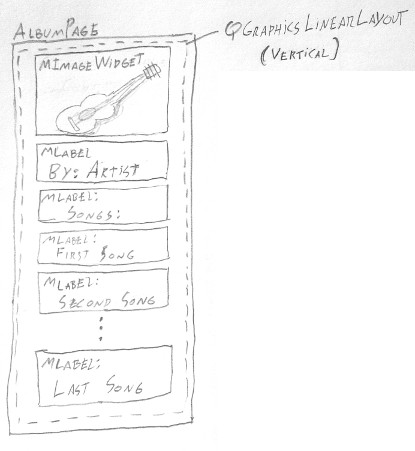 ALBUMPAGE
QGRAPHICSLINEARLAYOUT
(VERTICAL)
MIMAGEWIDGET
MLABEL
BY: ARTIST
MLABEL:
SONGS:
MLABEL:
FIRST SONG
MLABEL:
SECOND SONG
MLABEL:
LAST SONG